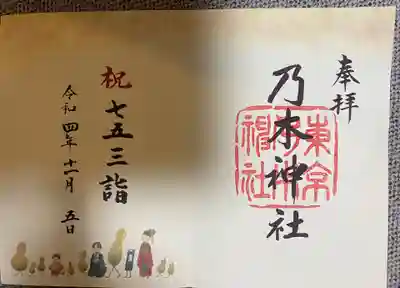 奉拝
乃木神社
東京乃木神社
祝 七五三詣
令和四年十一月五日